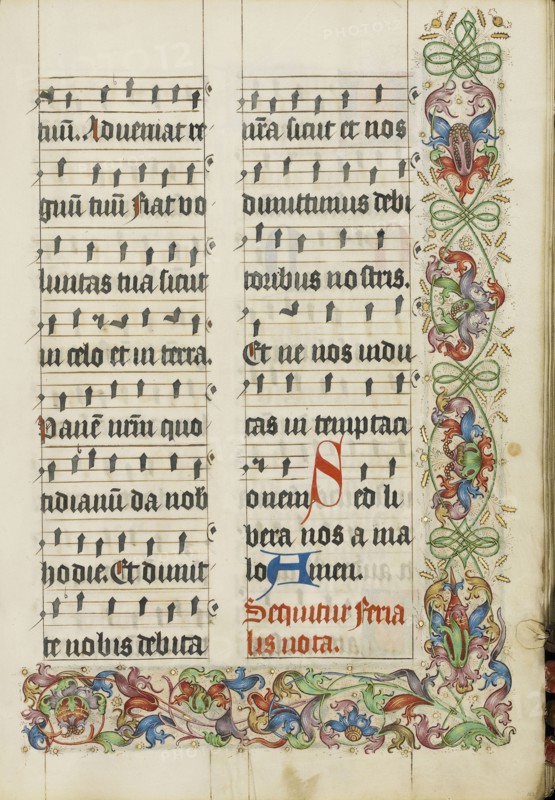 tuū. Adueniat re
gnū tuū Fiat vo
luntas tua sicut
in celo et in terra.
Panē nrm̄ quo
tidianū da nob
hodie. Et dimit
te nobis debita
nr̄a sicut et nos
dimittimus debi
toribus nostris.
Et ne nos indu
cas in temptaci
onem Sed li
bera nos a ma
lo Amen.
Sequitur feria
lis nota.